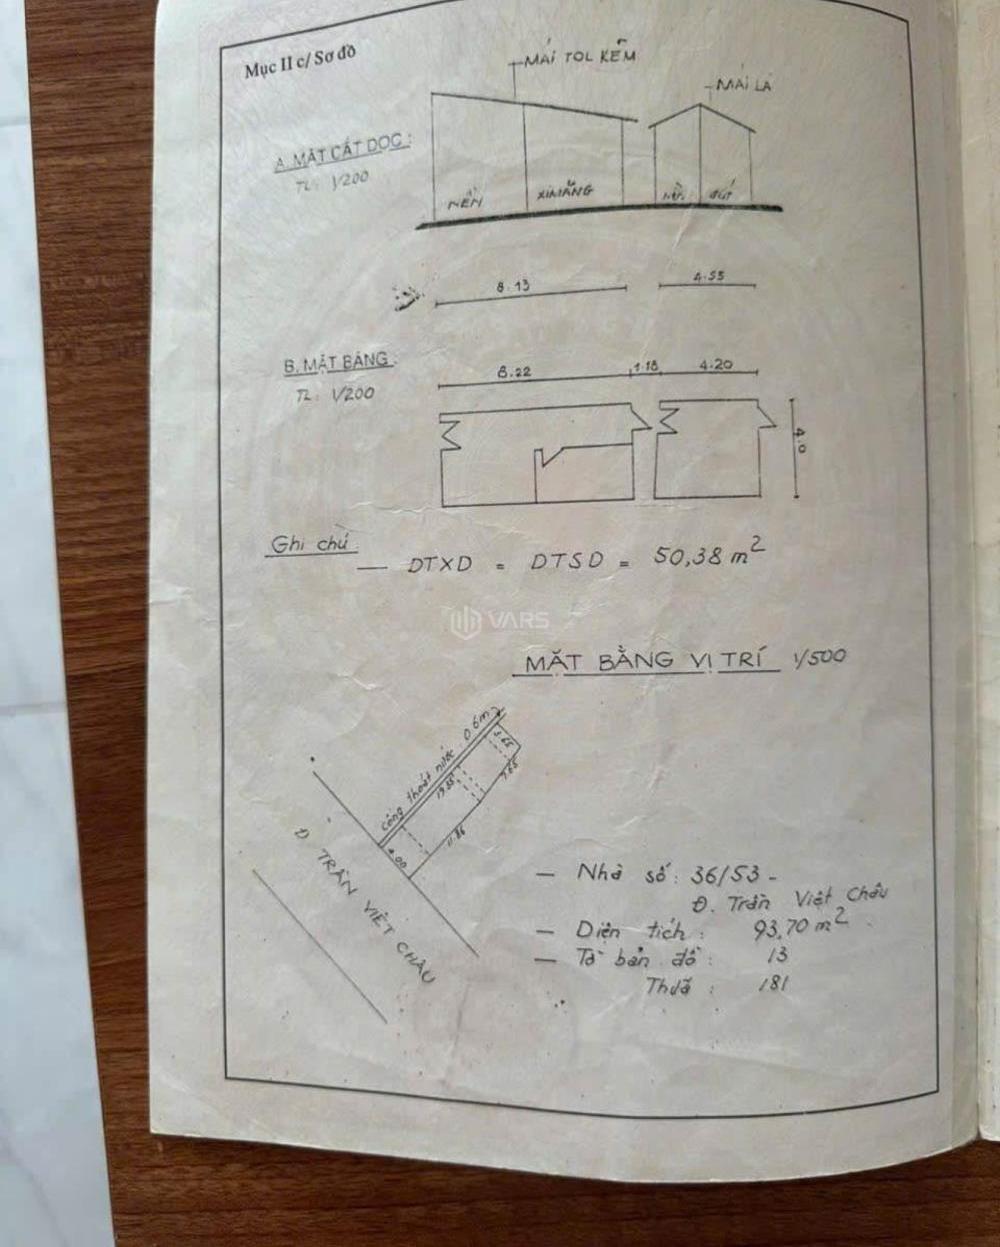 Mục II c/ Sơ đồ
MÁI TOL KẼM
MÁI LÁ
A. MẶT CẮT DỌC :
TL: 1/200
NỀN XIMĂNG NỀN ĐẤT
8.13 4.55
B. MẶT BẰNG :
TL: 1/200
8.22 1.18 4.20
4.0
Ghi chú
— DTXD = DTSD = 50,38 m²
VARS
MẶT BẰNG VỊ TRÍ 1/500
Cống thoát nước 0.6m
3.65
19.55
7.65
11.86
4.00
Đ TRẦN VIỆT CHÂU
— Nhà số: 36/53 -
Đ. Trần Việt Châu
— Diện tích : 93,70 m²
— Tờ bản đồ : 13
Thửa : 181